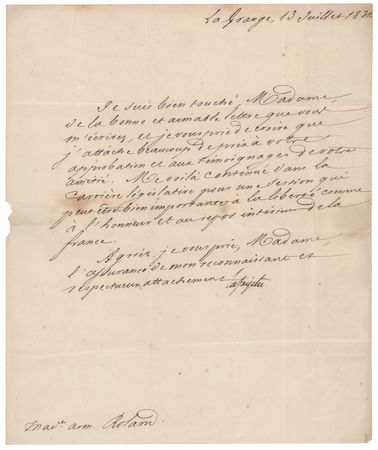 La Grange, 13 Juillet 183
Je suis bien touché, Madame,
de la bonne et aimable lettre que vous
m'écrivez, et je vous prie de croire que
j'attache beaucoup de prix à votre
approbation et aux témoignages de votre
amitié. Me voilà continué dans la
carrière législative pour une session qui
peut être bien importante à la liberté comme
à l'honneur et au repos intérieur de la
france.
Agréez, je vous prie, Madame,
l'assurance de mon reconnaissant et
respectueux attachement
Lafayette
Mad.e arm. Roland